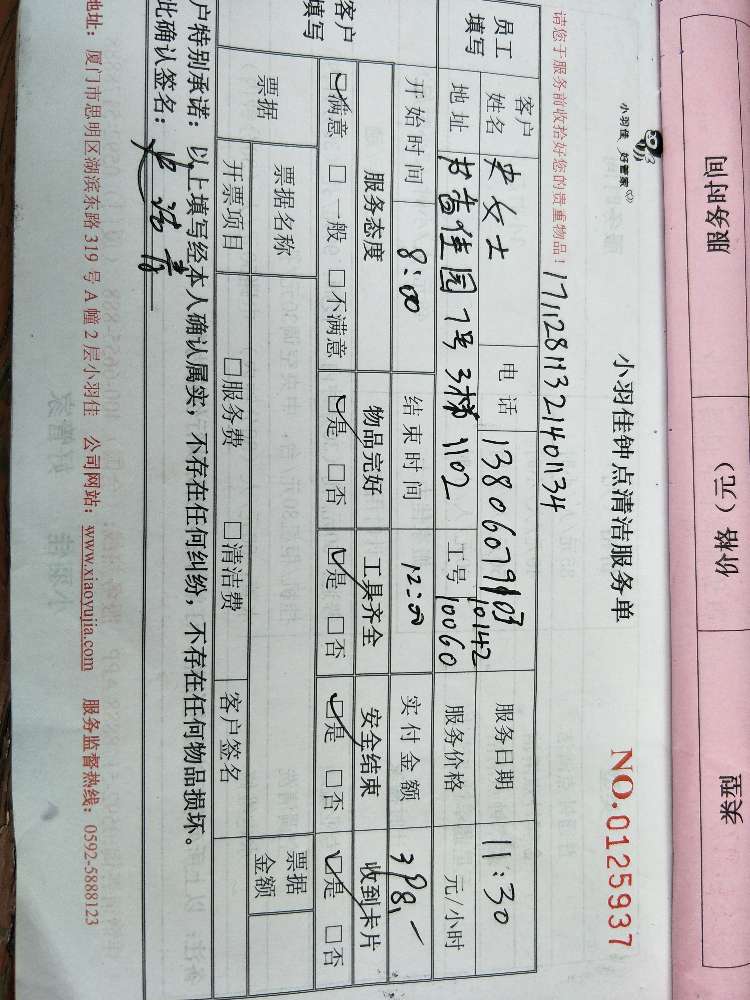 服务时间 价格（元） 类型
小羽佳 好管家
小羽佳钟点清洁服务单
NO.0125937
请您于服务前收拾好您的贵重物品！
17112811321401134
员工填写
客户姓名 史女士 电话 13806079103 服务日期 11:30
地址 古龙佳园7号3梯1102 工号 10142 10060 服务价格 元/小时
开始时间 8:00 结束时间 12:00 实付金额 398,-
客户填写
服务态度 物品完好 工具齐全 安全结束 收到卡片
☑满意 □一般 □不满意 ☑是 □否 ☑是 □否 ☑是 □否 ☑是 □否
票据 票据名称 票据金额
开票项目 □服务费 □清洁费 客户签名
户特别承诺：以上填写经本人确认属实，不存在任何纠纷，不存在任何物品损坏。
此确认签名：
地址：厦门市思明区湖滨东路319号A幢2层小羽佳 公司网站：www.xiaoyujia.com 服务监督热线：0592-5888123